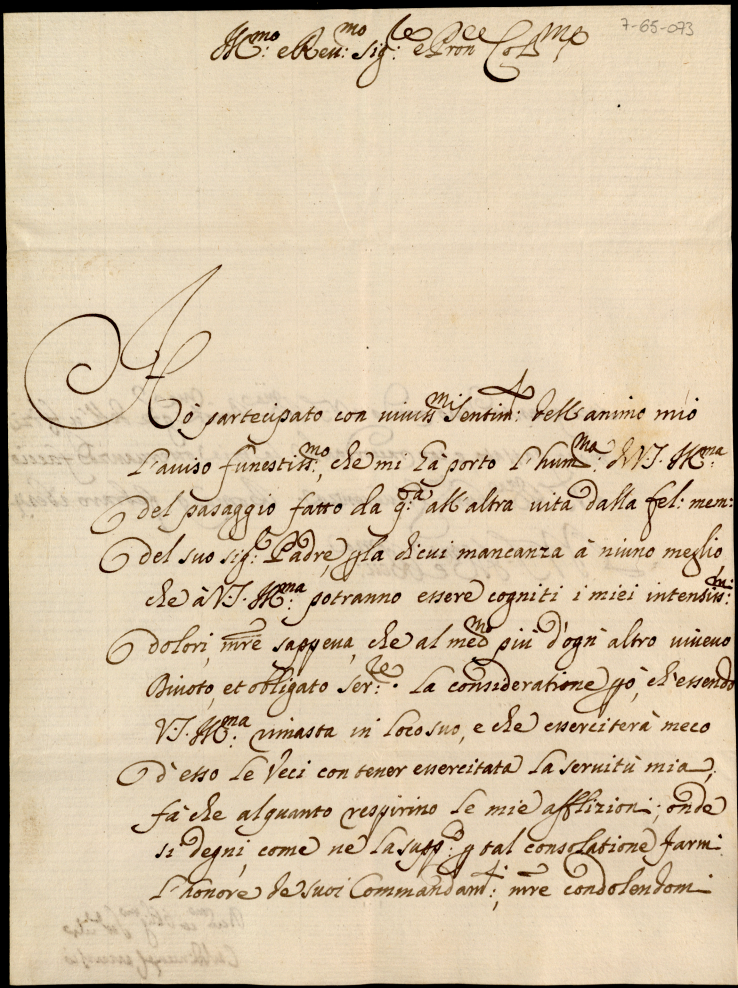 7-65-073
Ill:mo e Reu:mo Sig:re e Pron Col:mo
Hò partecipato con viuiss:mi Sentim:ti dell'animo mio
l'auiso funestiss:mo, che mi hà porto l'hum:ma di V.S. Ill:ma
del pasaggio fatto da q:ta all'altra vita dalla fel: mem:
del suo sig:r Padre, p la di cui mancanza à niuno meglio
che à V.S. Ill:ma potranno essere cogniti i miei intensiss:mi
dolori, mre sappeua, che al med:mo più d'ogn'altro uiueuo
Diuoto, et obligato ser:re. La consideratione però, ch'essendo
V.S. Ill:ma rimasta in loco suo, e che esserciterà meco
d'esso le Veci con tener essercitata la seruitù mia,
fà che alquanto respirino le mie afflizioni; onde
si degni, come ne la supp:co p tal consolatione farmi
l'honore de suoi Commandam:ti, mre condolendomi